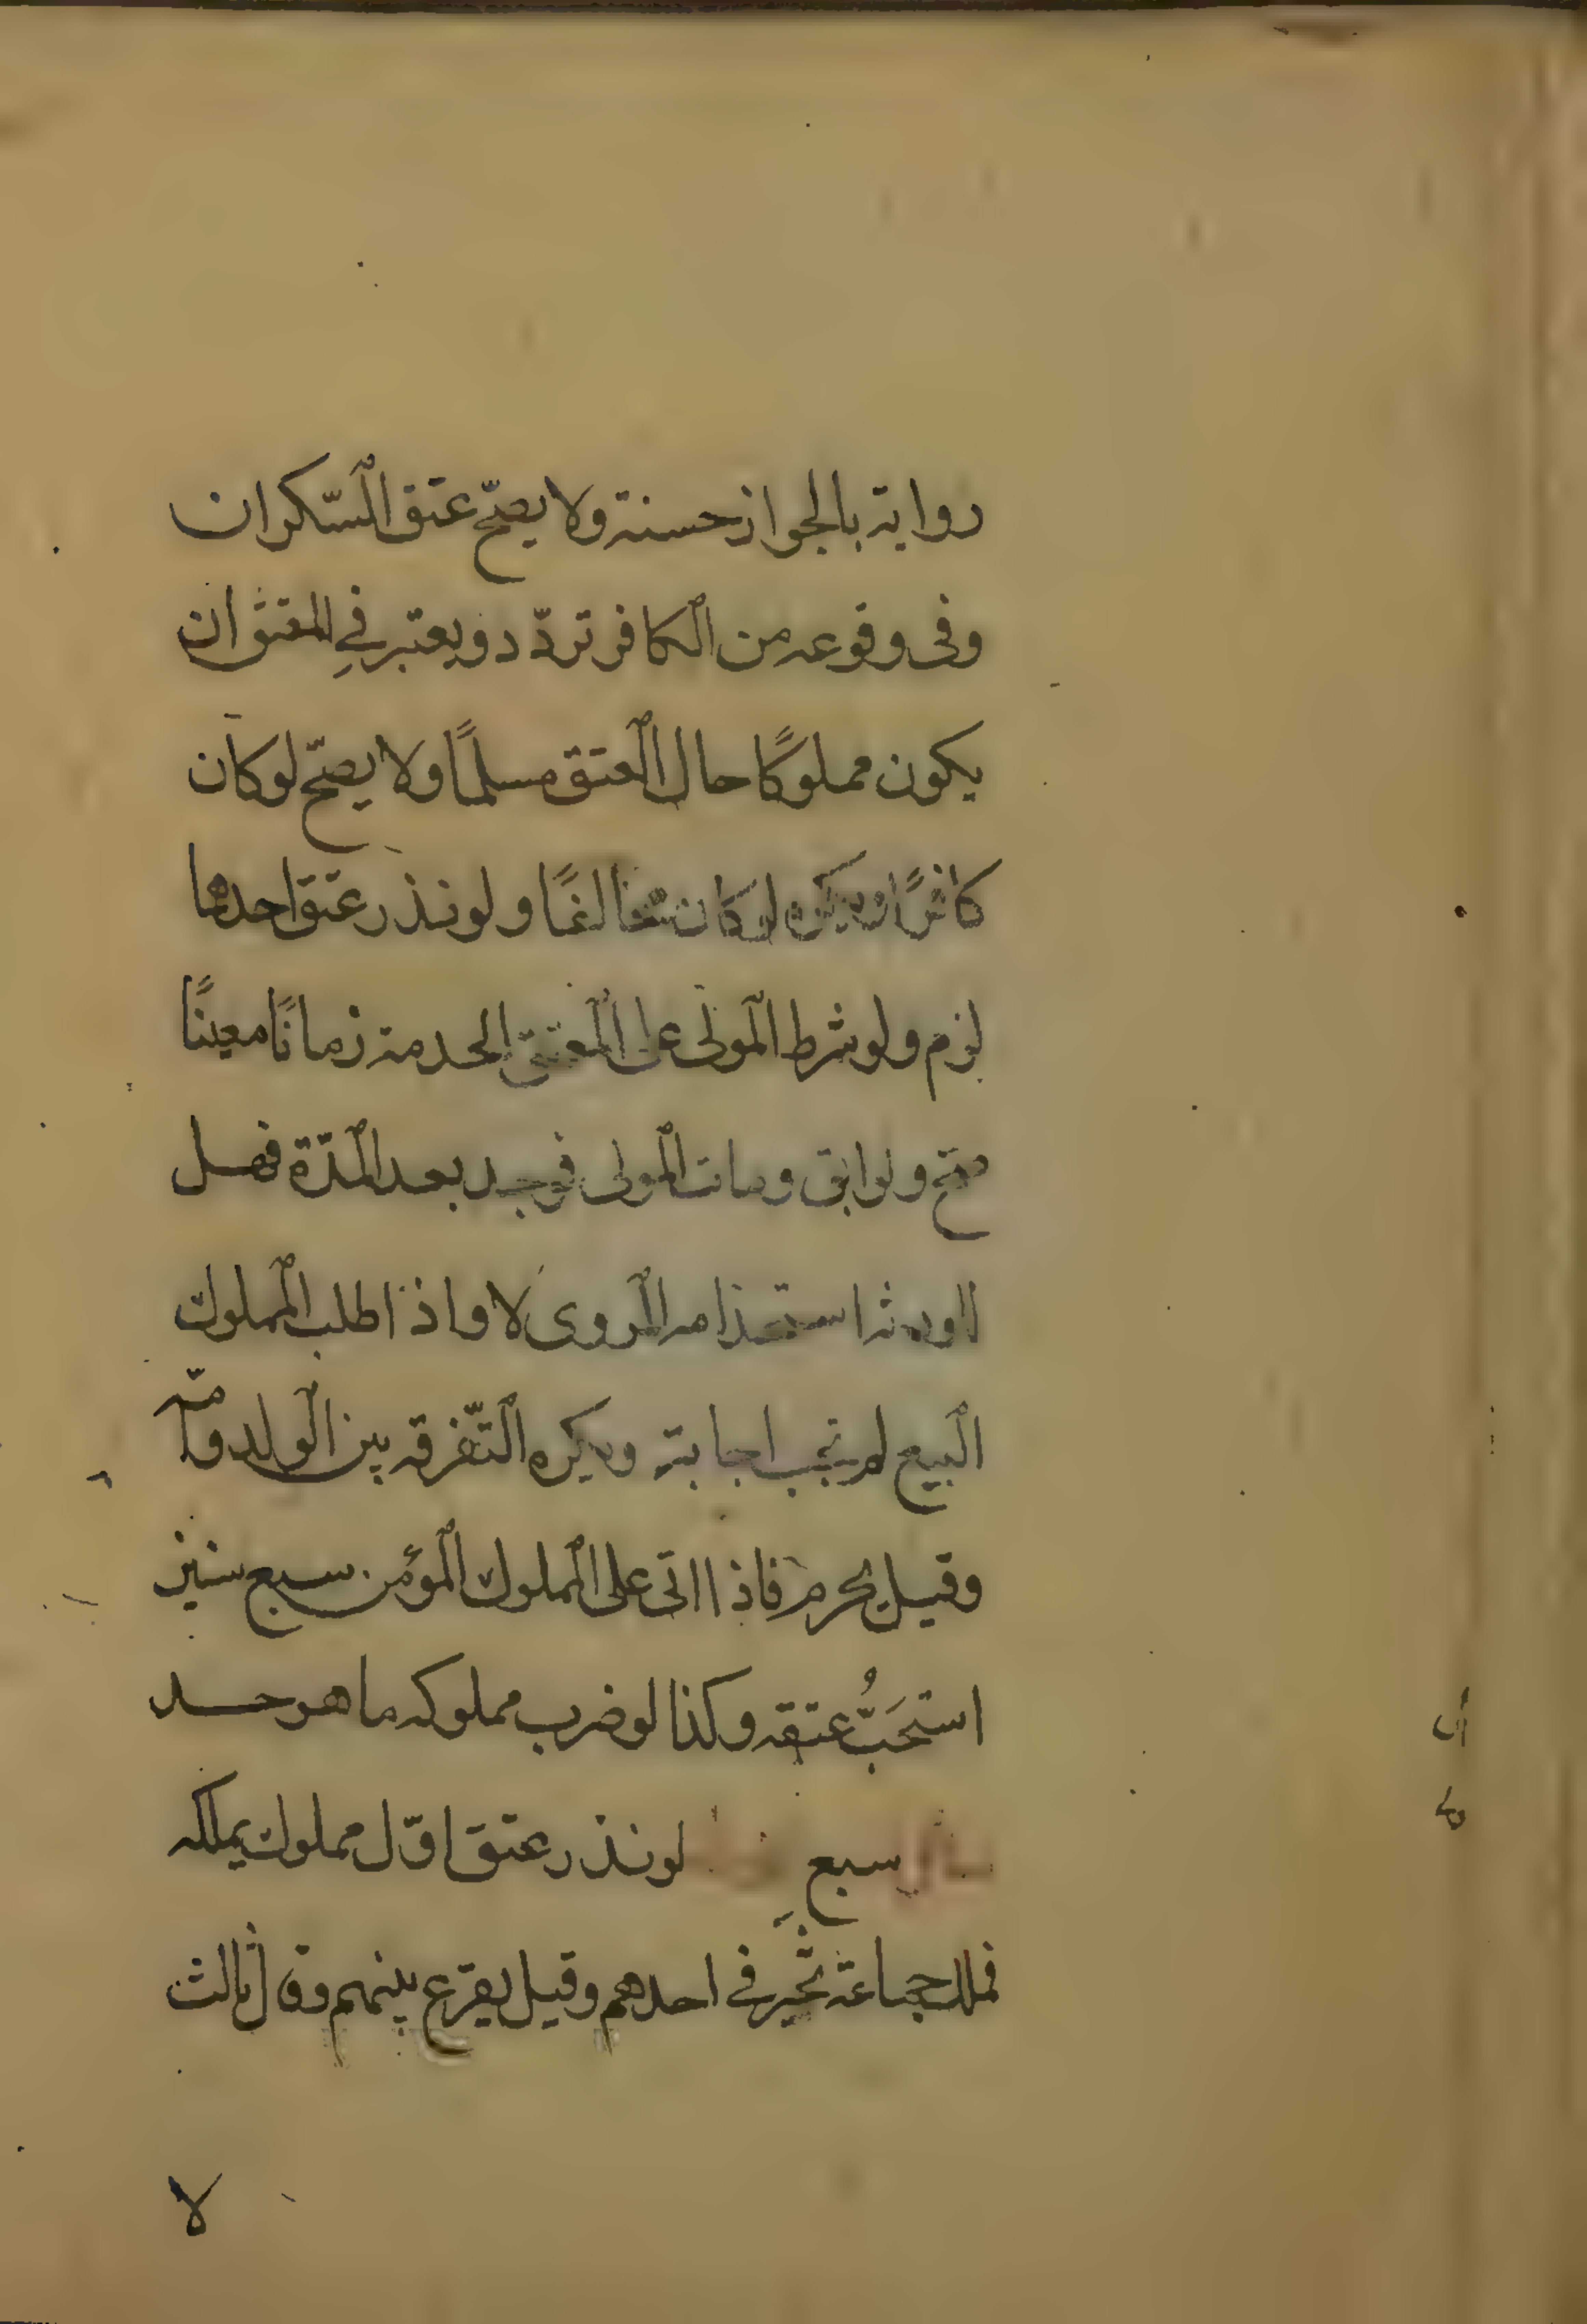 رواية بالجواز حسنة ولا يصحّ عتق السّكران
وفى وقوعه من الكافر تردّد ويعتبر في المعتق ان
يكون مملوكًا حال العتق مسلمًا ولا يصحّ لو كان
كافرًا ويكره لو كان مخالفًا ولو نذر عتق احدهما
لزم ولو شرط المولى على المعتق الخدمة زمانًا معينًا
صحّ ولو ابق ومات المولى فوجد بعد المدّة فهل
للورثة استخدامه المروى لا واذا طلب المملوك
البيع لم تجب اجابته ويكره التّفرقه بين الولد وامّه
وقيل يحرم فاذا اتى على المملوك المؤمن سبع سنين
استحَبُّ عتقه وكذا لو ضرب مملوكه ما هو حد
سبع لو نذر عتق اوّل مملوك يملكه
فملك جماعة تخيّر في احدهم وقيل يقرع بينهم وقال ثالث
لا